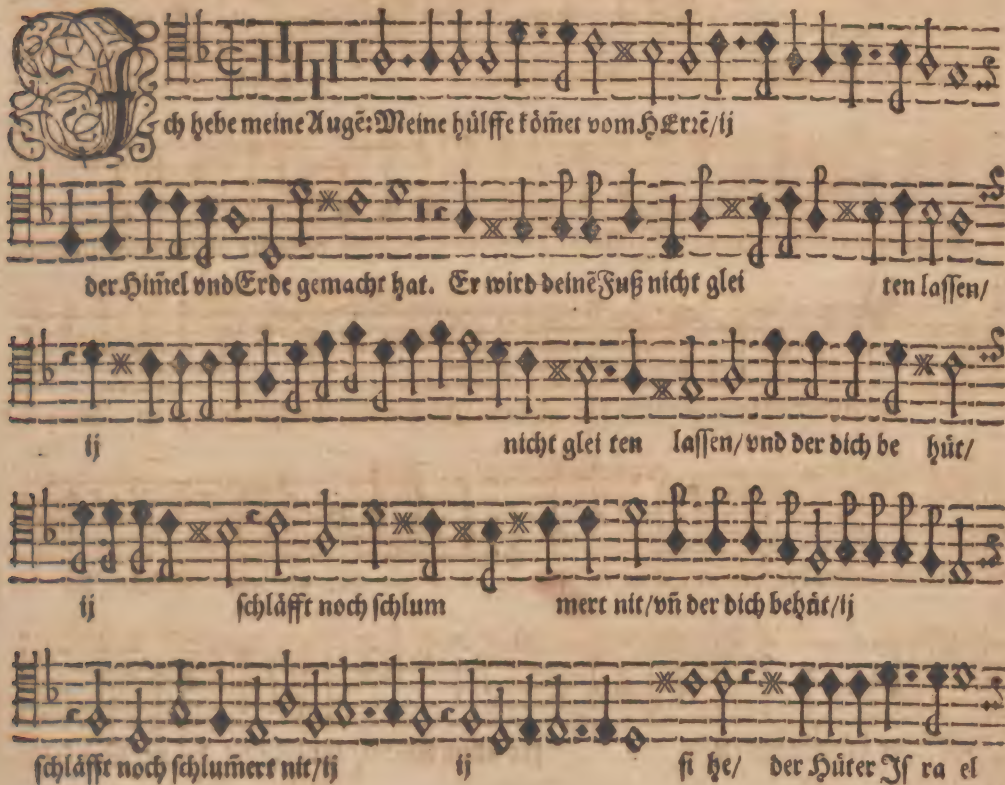 Ich hebe meine Augẽ: Meine hülffe kom̃et vom HErrẽ/ ij
der Him̃el vnd Erde gemacht hat. Er wird deinẽ Fuß nicht glei ten lassen/
ij nicht glei ten lassen/ vnd der dich be hüt/
ij schläfft noch schlum mert nit/ vñ der dich behüt/ ij
schläfft noch schlum̃ert nit/ ij ij si he/ der Hüter Js ra el